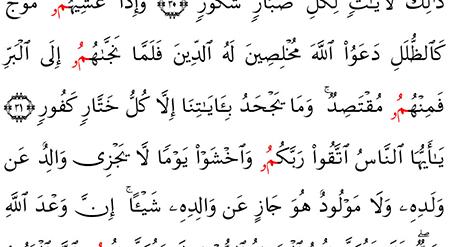 ذَٰلِكَ لَأٓيَٰتٖ لِّكُلِّ صَبَّارٖ شَكُورٖ ﴿٣٠﴾ وَإِذَا غَشِيَهُمُۥ مَوۡجٞ
كَٱلظُّلَلِ دَعَوُاْ ٱللَّهَ مُخۡلِصِينَ لَهُ ٱلدِّينَ فَلَمَّا نَجَّىٰهُمُۥ إِلَى ٱلۡبَرِّ
فَمِنۡهُمُۥ مُقۡتَصِدٞۚ وَمَا يَجۡحَدُ بِـَٔايَٰتِنَا إِلَّا كُلُّ خَتَّارٖ كَفُورٖ ﴿٣١﴾
يَٰٓأَيُّهَا ٱلنَّاسُ ٱتَّقُواْ رَبَّكُمُۥ وَٱخۡشَوۡاْ يَوۡمٗا لَّا يَجۡزِي وَالِدٌ عَن
وَلَدِهِۦ وَلَا مَوۡلُودٌ هُوَ جَازٍ عَن وَالِدِهِۦ شَيۡـًٔاۚ إِنَّ وَعۡدَ ٱللَّهِ